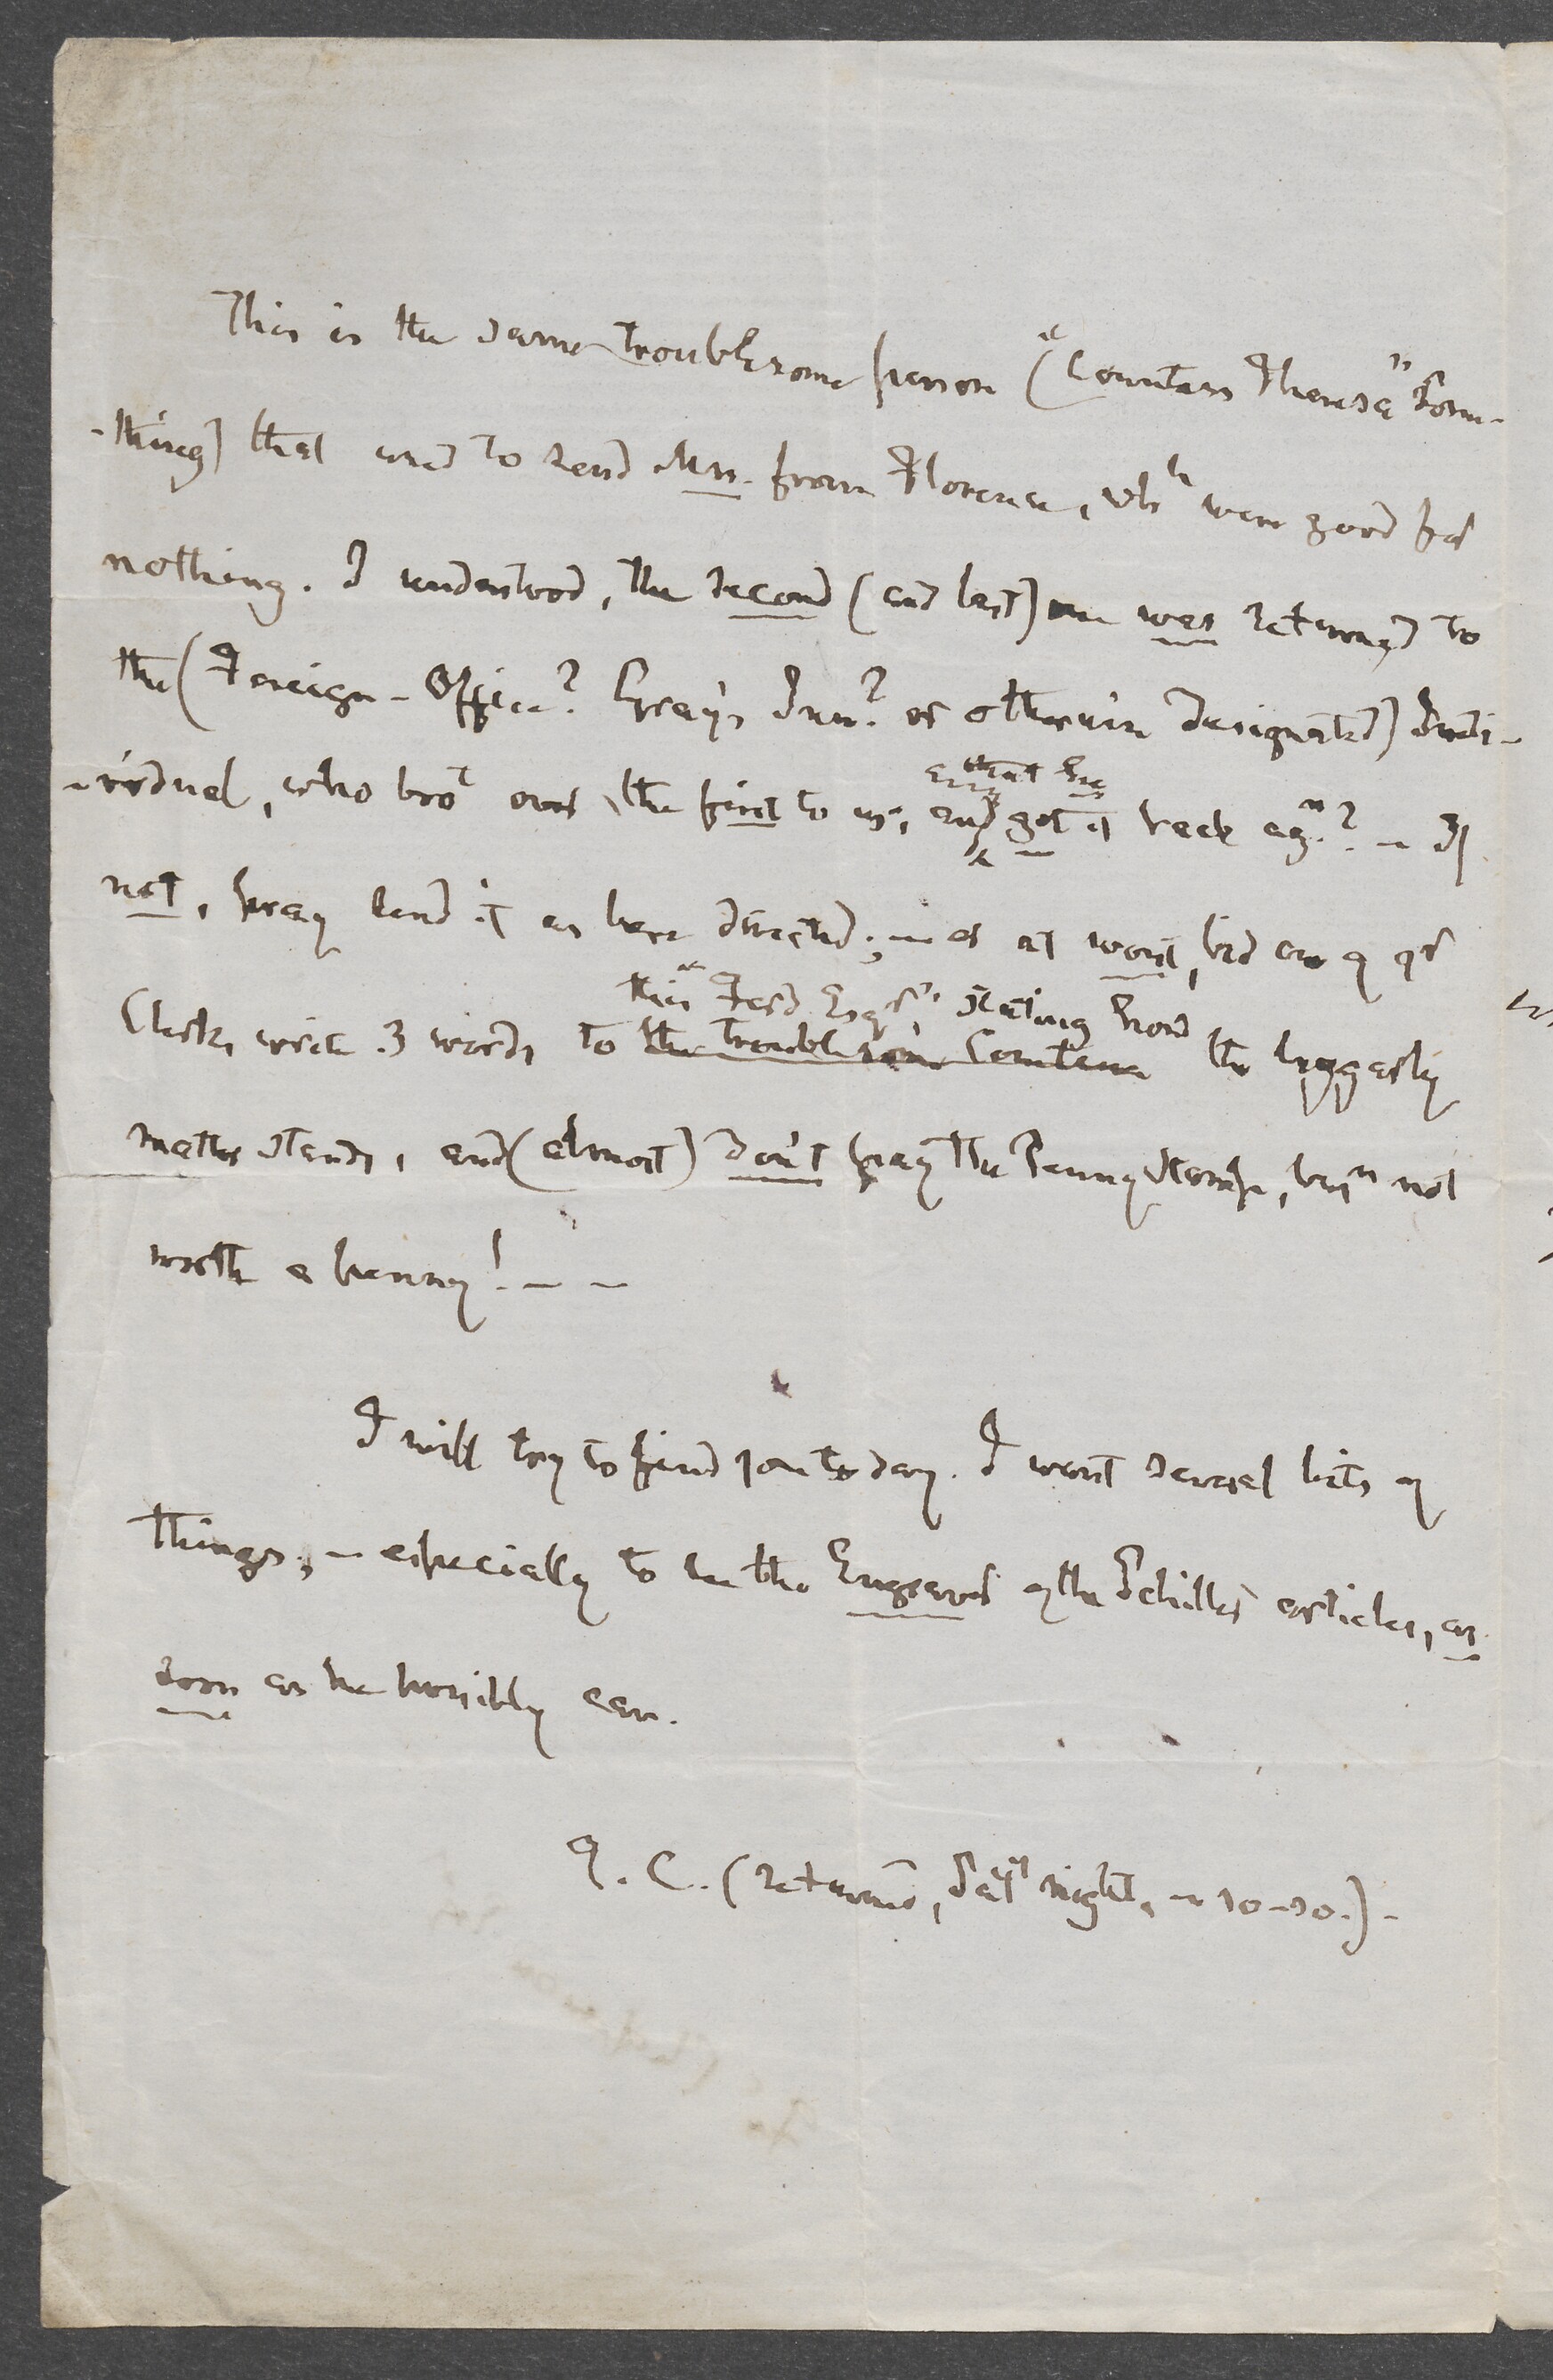 This is the same troublesome person ("Countess Theresa" Some-
-thing) that used to send Mss. from Florence, whh were good for
nothing. I understood, the second (and last) one was returned to
the (Foreign-Office? Gray's Inn? or otherwise designated) Indi-
-vidual, who brot over the first to us, and got it back agn? — If
not, pray send it as here directed; — or at worst, bid one of yr
Clerks write 3 words to the troublesome Countess this "Ferd Esqr", stating how the beggarly
matter stands, and (almost) don't pay the Penny Stamp, beg not
worth a penny! — —
I will try to find you to day. I want several bits of
things, — especially to see the Engraver of the Schiller articles, as
soon as he possibly can.
T. C. (returned, Saty night, — 10-10.) -